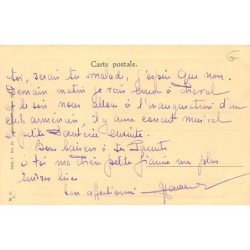 Carte postale.
toi, serais tu malade, j'espère que non.
Demain matin je vais à cheval
et le soir nous allons à l'inauguration d'un
club arménien, il y aura concert musical
et petite sauterie ensuite.
Bons baisers à tes Parents
à toi ma chère petite mes plus
tendres
ton affectionné